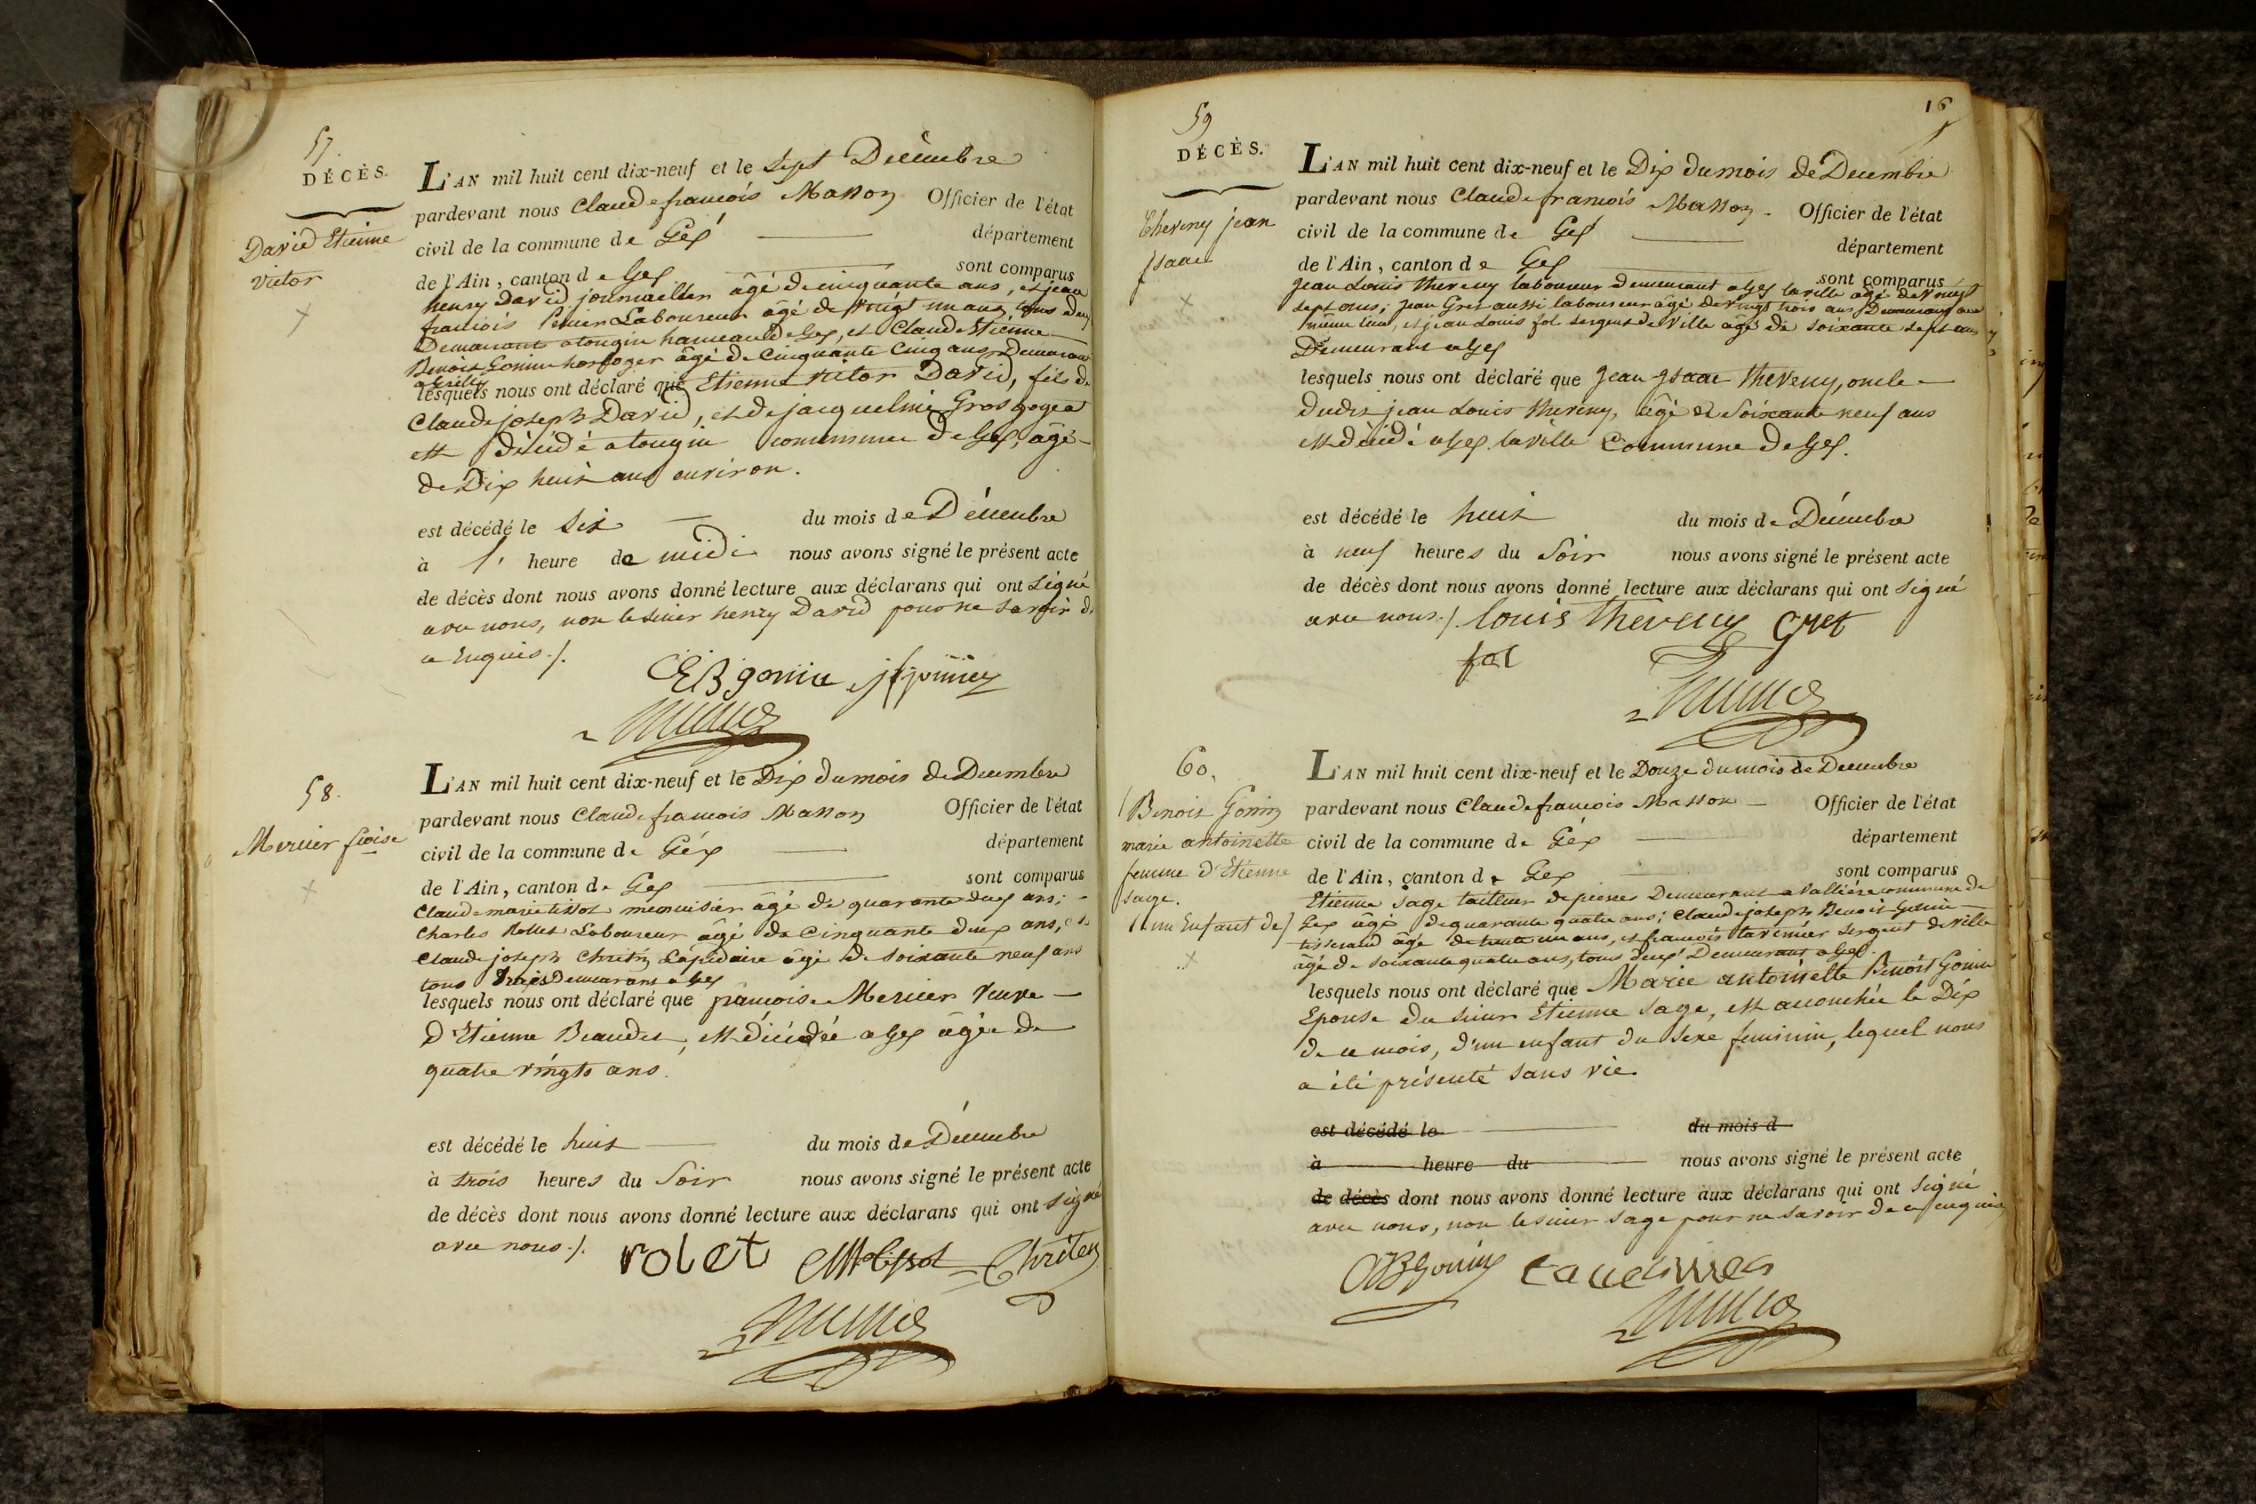 57.
DÉCÈS.
David Etienne
victor
L'AN mil huit cent dix-neuf et le sept Décembre
pardevant nous Claude françois Masson Officier de l'état
civil de la commune de Gex département
de l'Ain, canton de Gex sont comparus
henry David journaellier âgé de cinquante ans, et jean
françois Laboureur âgé de vingt un ans, tous deux
Demeurants a tougin hameau de Gex, et Claude Etienne
Benoit Gonin horloger âgé de Cinquante Cinq ans Demeurant
lesquels nous ont déclaré que Etienne victor David, fils de
Claude joseph David, et de jacqueline Grosgogeat
est décédé a tougin commune de Gex, âgé
de Dix huit ans environ.
est décédé le six du mois de Décembre
à l' heure de midi nous avons signé le présent acte
de décès dont nous avons donné lecture aux déclarans qui ont signé
avec nous, non le sieur henry David pour ne savoir de
ce Enquis ./.
CEB gonin
58.
Mercier foise
L'AN mil huit cent dix-neuf et le Dix du mois de Decembre
pardevant nous Claude francois Masson Officier de l'état
civil de la commune de Géx département
de l'Ain, canton de Gex sont comparus
Claude marie tissot menuisier âgé de quarante deux ans;
Charles Rollet Laboureur âgé de Cinquante deux ans, et
Claude joseph Chretin Lapidaire âgé de soixante neuf ans
tous trois Demeurant a Gex
lesquels nous ont déclaré que françoise Mercier veuve
d'Etienne Beaudet, est décédée a Gex âgée de
quatre vingts ans.
est décédé le huit du mois de Décembre
à trois heures du Soir nous avons signé le présent acte
de décès dont nous avons donné lecture aux déclarans qui ont signé
avec nous ./. rolet CM tissot Chrêtin
16
59
DÉCÈS.
Theveny jean
jsaac
L'AN mil huit cent dix-neuf et le Dix du mois de Decembre
pardevant nous Claude francois Masson Officier de l'état
civil de la commune de Gex département
de l'Ain, canton de Gex sont comparus
jean Louis theveny laboureur demeurant a Gex la ville âgé de vingt
sept ans; jean Gret aussi laboureur âgé de vingt trois ans Demeurant au
même lieu, et jean Louis fol sergent de ville âgé de soixante sept ans
Demeurant a Gex
lesquels nous ont déclaré que jean jsaac theveny, oncle
dudit jean Louis theveny, âgé de Soixante neuf ans
est décédé a Gex la ville Commune de Gex.
est décédé le huit du mois de Décembre
à neuf heures du Soir nous avons signé le présent acte
de décès dont nous avons donné lecture aux déclarans qui ont signé
avec nous ./. louis theveny Gret
fol
60.
(Benoit Gonin
marie antoinette
femme d'Etienne
sage.
(un Enfant de)
L'AN mil huit cent dix-neuf et le Douze du mois de Decembre
pardevant nous Claude francois Masson Officier de l'état
civil de la commune de Géx département
de l'Ain, canton de Gex sont comparus
Etienne sage tailleur de pierres Demeurant a Vallière commune de
Gex âgé de quarante quatre ans; Claude joseph Benoit Gonin
tisserand âgé de trente un ans, et francois tavernier sergent de ville
âgé de soixante quatre ans, tous deux Demeurant a Gex.
lesquels nous ont déclaré que Marie antoinette Benoit Gonin
Epouse du sieur Etienne Sage, est accouchée le Dix
de ce mois, d'un enfant du Sexe feminin, lequel nous
a été présenté sans vie.
est décédé le du mois d
à heure du nous avons signé le présent acte
de décès dont nous avons donné lecture aux déclarans qui ont signé
avec nous, non le sieur sage pour ne savoir de ce enquis